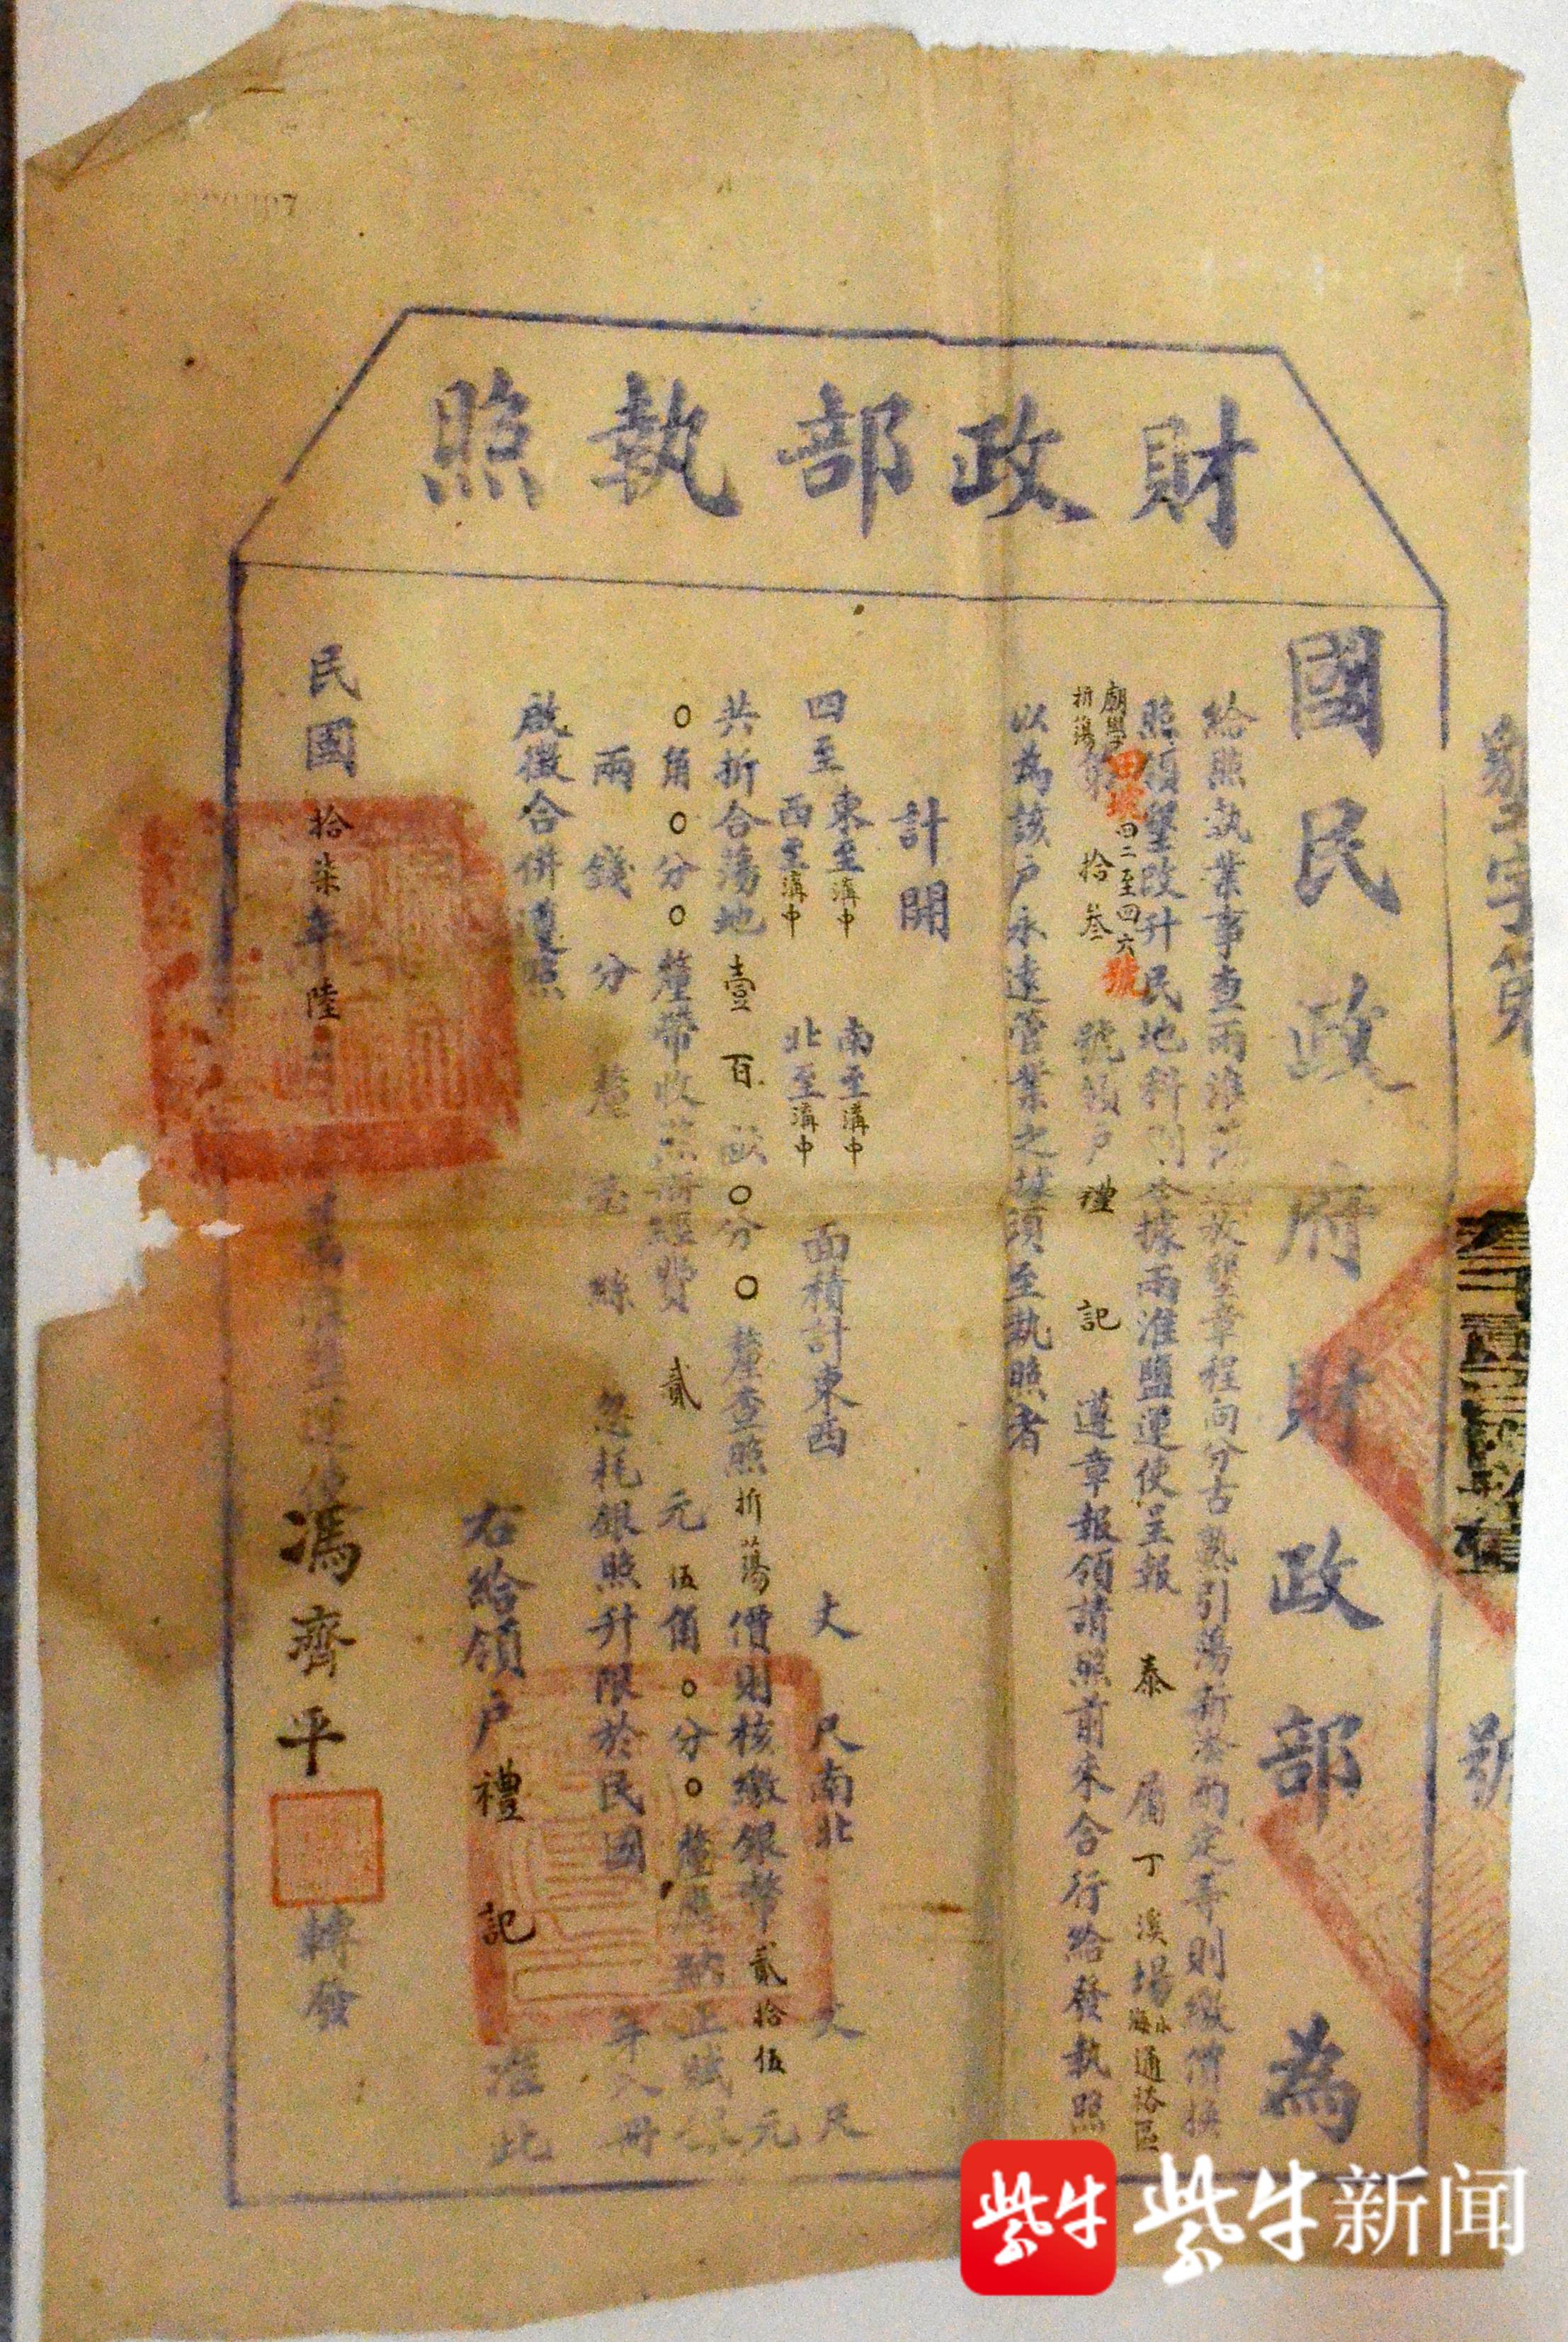 財政部執照
墾字第
號
國民政府財政部為
給照執業事查兩淮放墾章程向分古熟引蕩新淤酌定等則繳價換
照領墾改升民地科則今據兩淮鹽運使呈報泰屬丁溪場通裕區
廟學田墩四二至四六號
折蕩第拾叁號領戶禮記遵章報領請照前來合行給發執照
以為該戶永遠管業之據須至執照者
計開
四至東至溝中南至溝中面積計東西丈尺南北丈尺
西至溝中北至溝中
共折合蕩地壹百畝〇分〇釐查照折蕩價則核繳銀幣貳拾伍元
〇角〇分〇釐帶收照冊經費貳元伍角〇分〇釐應納正賦銀
兩錢分釐毫絲忽耗銀照升限於民國年入冊
啟徵合併遵照
右給領戶禮記准此
民國拾柒年陸月
運使馮齊平轉發
紫牛
紫牛新闻